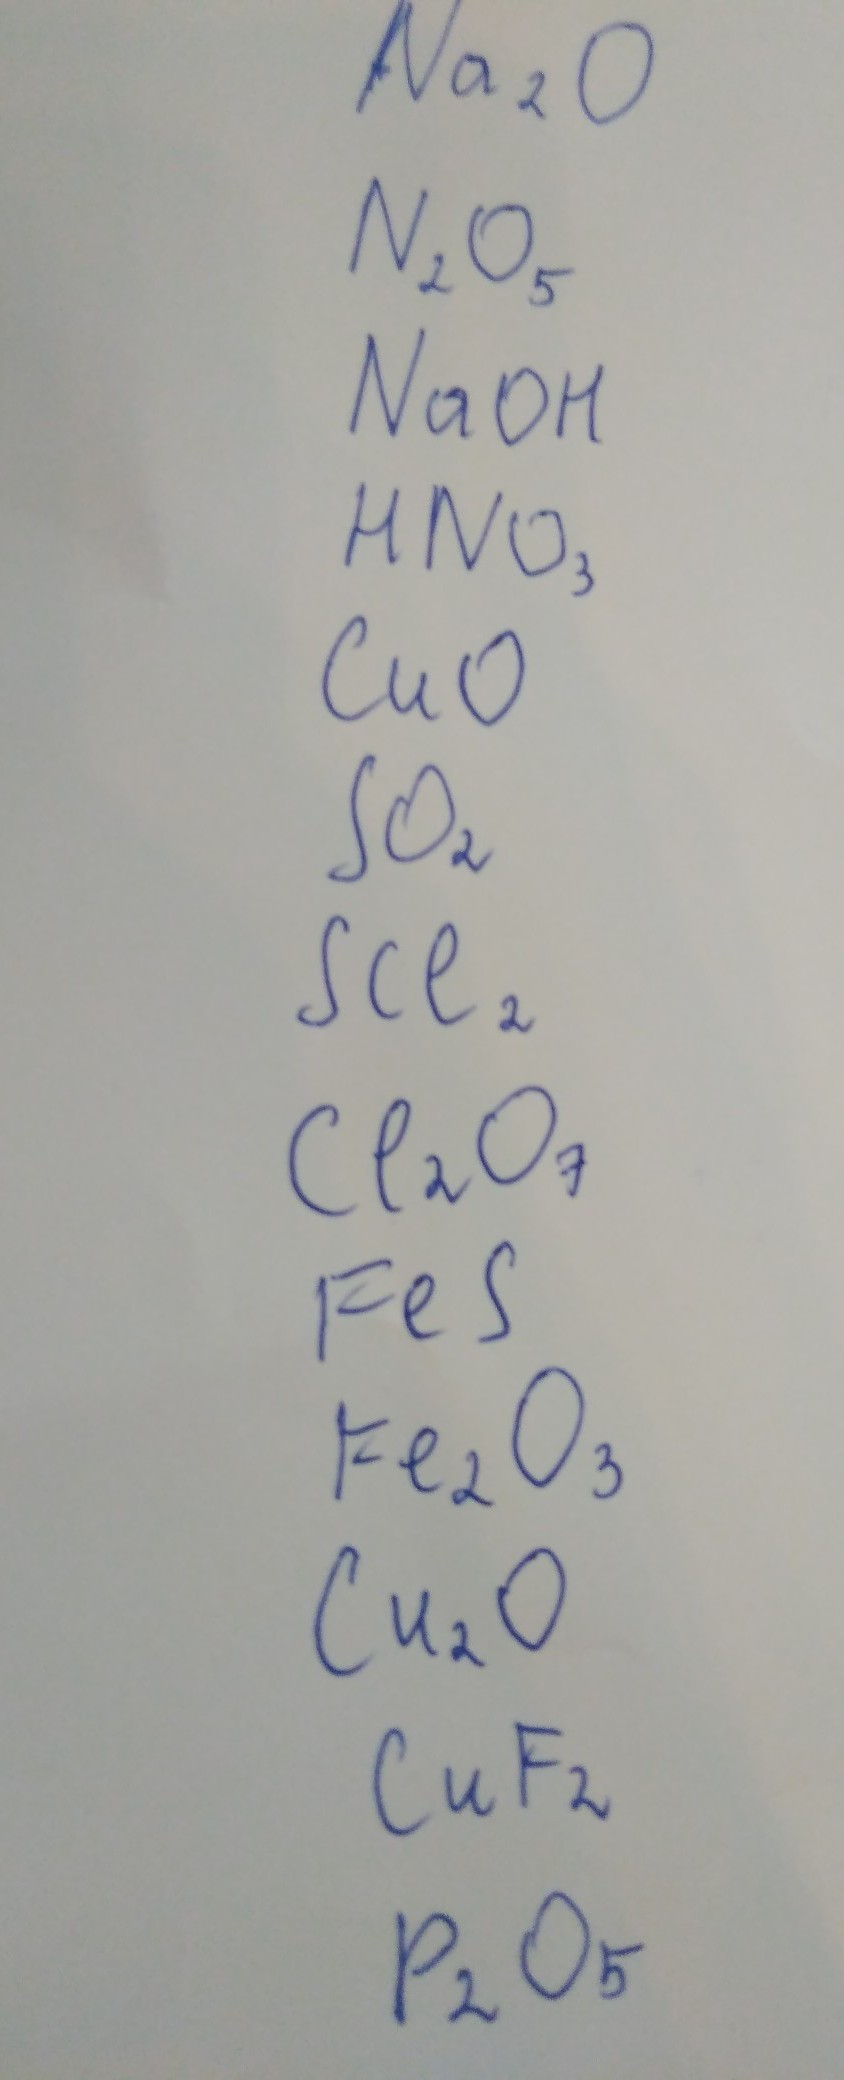 Na₂O
N₂O₅
NaOH
HNO₃
CuO
SO₂
SCl₂
Cl₂O₇
FeS
Fe₂O₃
Cu₂O
CuF₂
P₂O₅